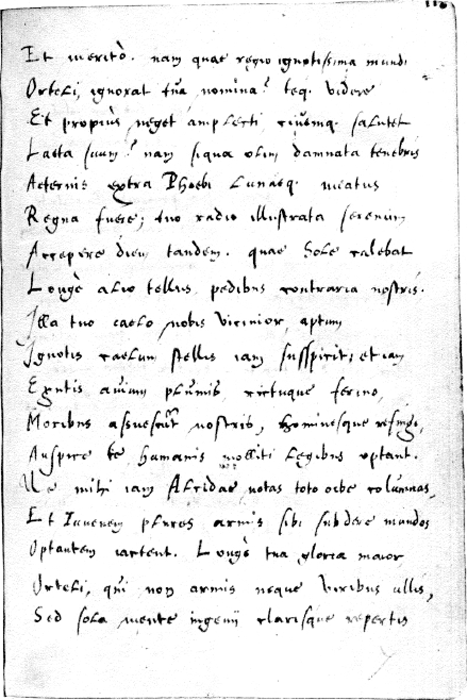 118
Et meritò. nam quae regio ignotissima mundi
Orteli, ignorat tua nomina? teq. videre
Et propiùs neget amplecti, ciuemq. salutet
Laeta suum? nam siqua olim damnata tenebris
Aeternis extra Phoebi Lunaeq. meatus
Regna fuere; tuo radio illustrata serenum
Accepere diem tandem. quae Sole calebat
Longè alio tellus, pedibus contraria nostris.
Illa tuo caelo nobis vicinior, aptum
Ignotis caelum stellis iam suspicit; etiam
Exutis auium plumis, rictuque ferino,
Moribus assuescunt nostris, hominesque refingi,
Auspice te, humanis molliti legibus optant.
Ne mihi iam Alcidae notas toto orbe columnas,
Et Iuvenem plures armis sibi subdere mundos
Optantem iactent. Longè tua gloria maior
Orteli, qui non armis neque viribus ullis,
Sed sola mente ingenii clarisque repertis